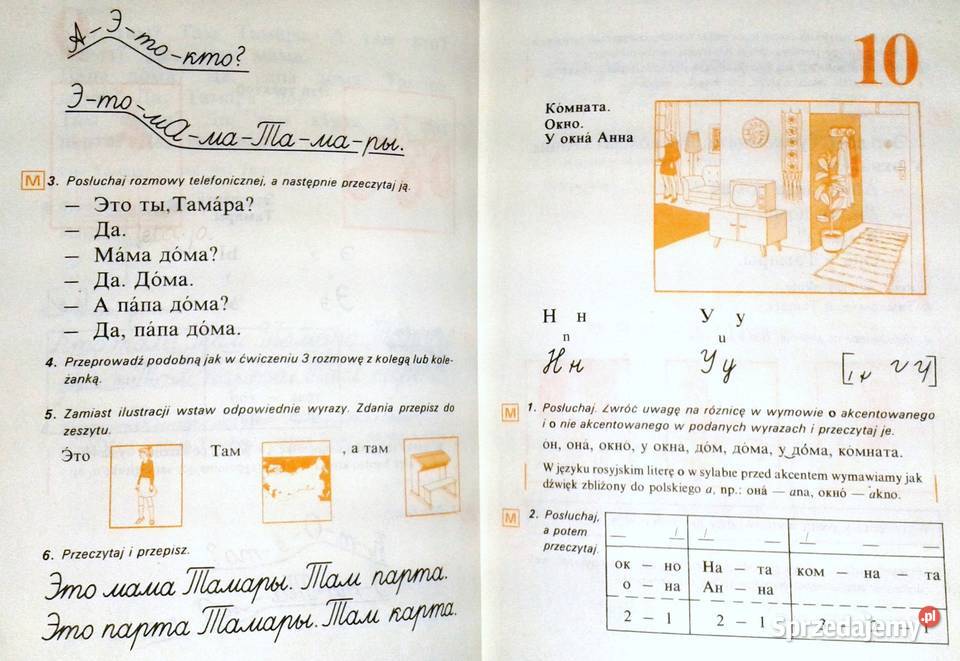 А-Э-то-кто?
Э-то-ма-ма-Та-ма-ры.
M 3. Posłuchaj rozmowy telefonicznej, a następnie przeczytaj ją.
— Это ты, Тама́ра?
— Да.
— Ма́ма до́ма?
— Да. До́ма.
— А па́па до́ма?
— Да, па́па до́ма.
4. Przeprowadź podobną jak w ćwiczeniu 3 rozmowę z kolegą lub kole-
żanką.
5. Zamiast ilustracji wstaw odpowiednie wyrazy. Zdania przepisz do
zeszytu.
Э́то
Там
, а там
6. Przeczytaj i przepisz.
Это мама Тамары. Там парта.
Это парта Тамары. Там карта.
10
Ко́мната.
Окно́.
У окна́ Анна
Н н
У у
n
u
Н н
У у
M 1. Posłuchaj. Zwróć uwagę na różnicę w wymowie o akcentowanego
i o nie akcentowanego w podanych wyrazach i przeczytaj je.
о́н, она́, окно́, у окна́, до́м, до́ма, у до́ма, ко́мната.
W języku rosyjskim literę o w sylabie przed akcentem wymawiamy jak
dźwięk zbliżony do polskiego a, np.: она́ — ana, окно́ — akno.
M 2. Posłuchaj,
a potem
przeczytaj.
ок — но
На — та
ком — на — та
о — на
Ан — на
2 — 1
2 — 1
2 — 2 — 1
Sprzedajemy.pl